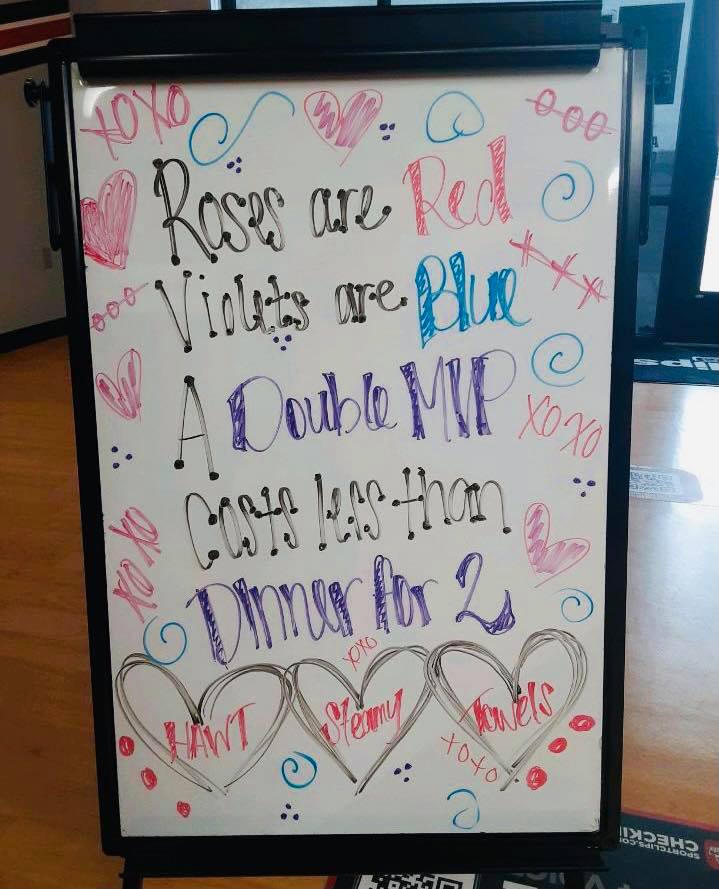 XOXO
Roses are Red
Violets are Blue
A Double MVP
XOXO
Costs less than
XOXO
Dinner for 2
XOXO
HAWT Steamy Towels
XOXO
CHECKI
SPORTCLIPS.COM